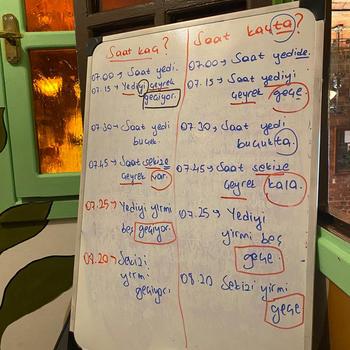 Saat kaç?
07.00 → Saat yedi.
07.15 → Yediyi çeyrek
geçiyor.
07.30 → Saat yedi
buçuk.
07.45 → Saat sekize
çeyrek var.
07.25 → Yediyi yirmi
beş geçiyor.
08.20 → Sekizi
yirmi
geçiyor.
Saat kaçta?
07.00 → Saat yedide.
07.15 → Saat yediyi
çeyrek geçe.
07.30 → Saat yedi
buçukta.
07.45 → Saat sekize
çeyrek kala.
07.25 → Yediyi
yirmi beş
geçe.
08.20 Sekizi yirmi
geçe